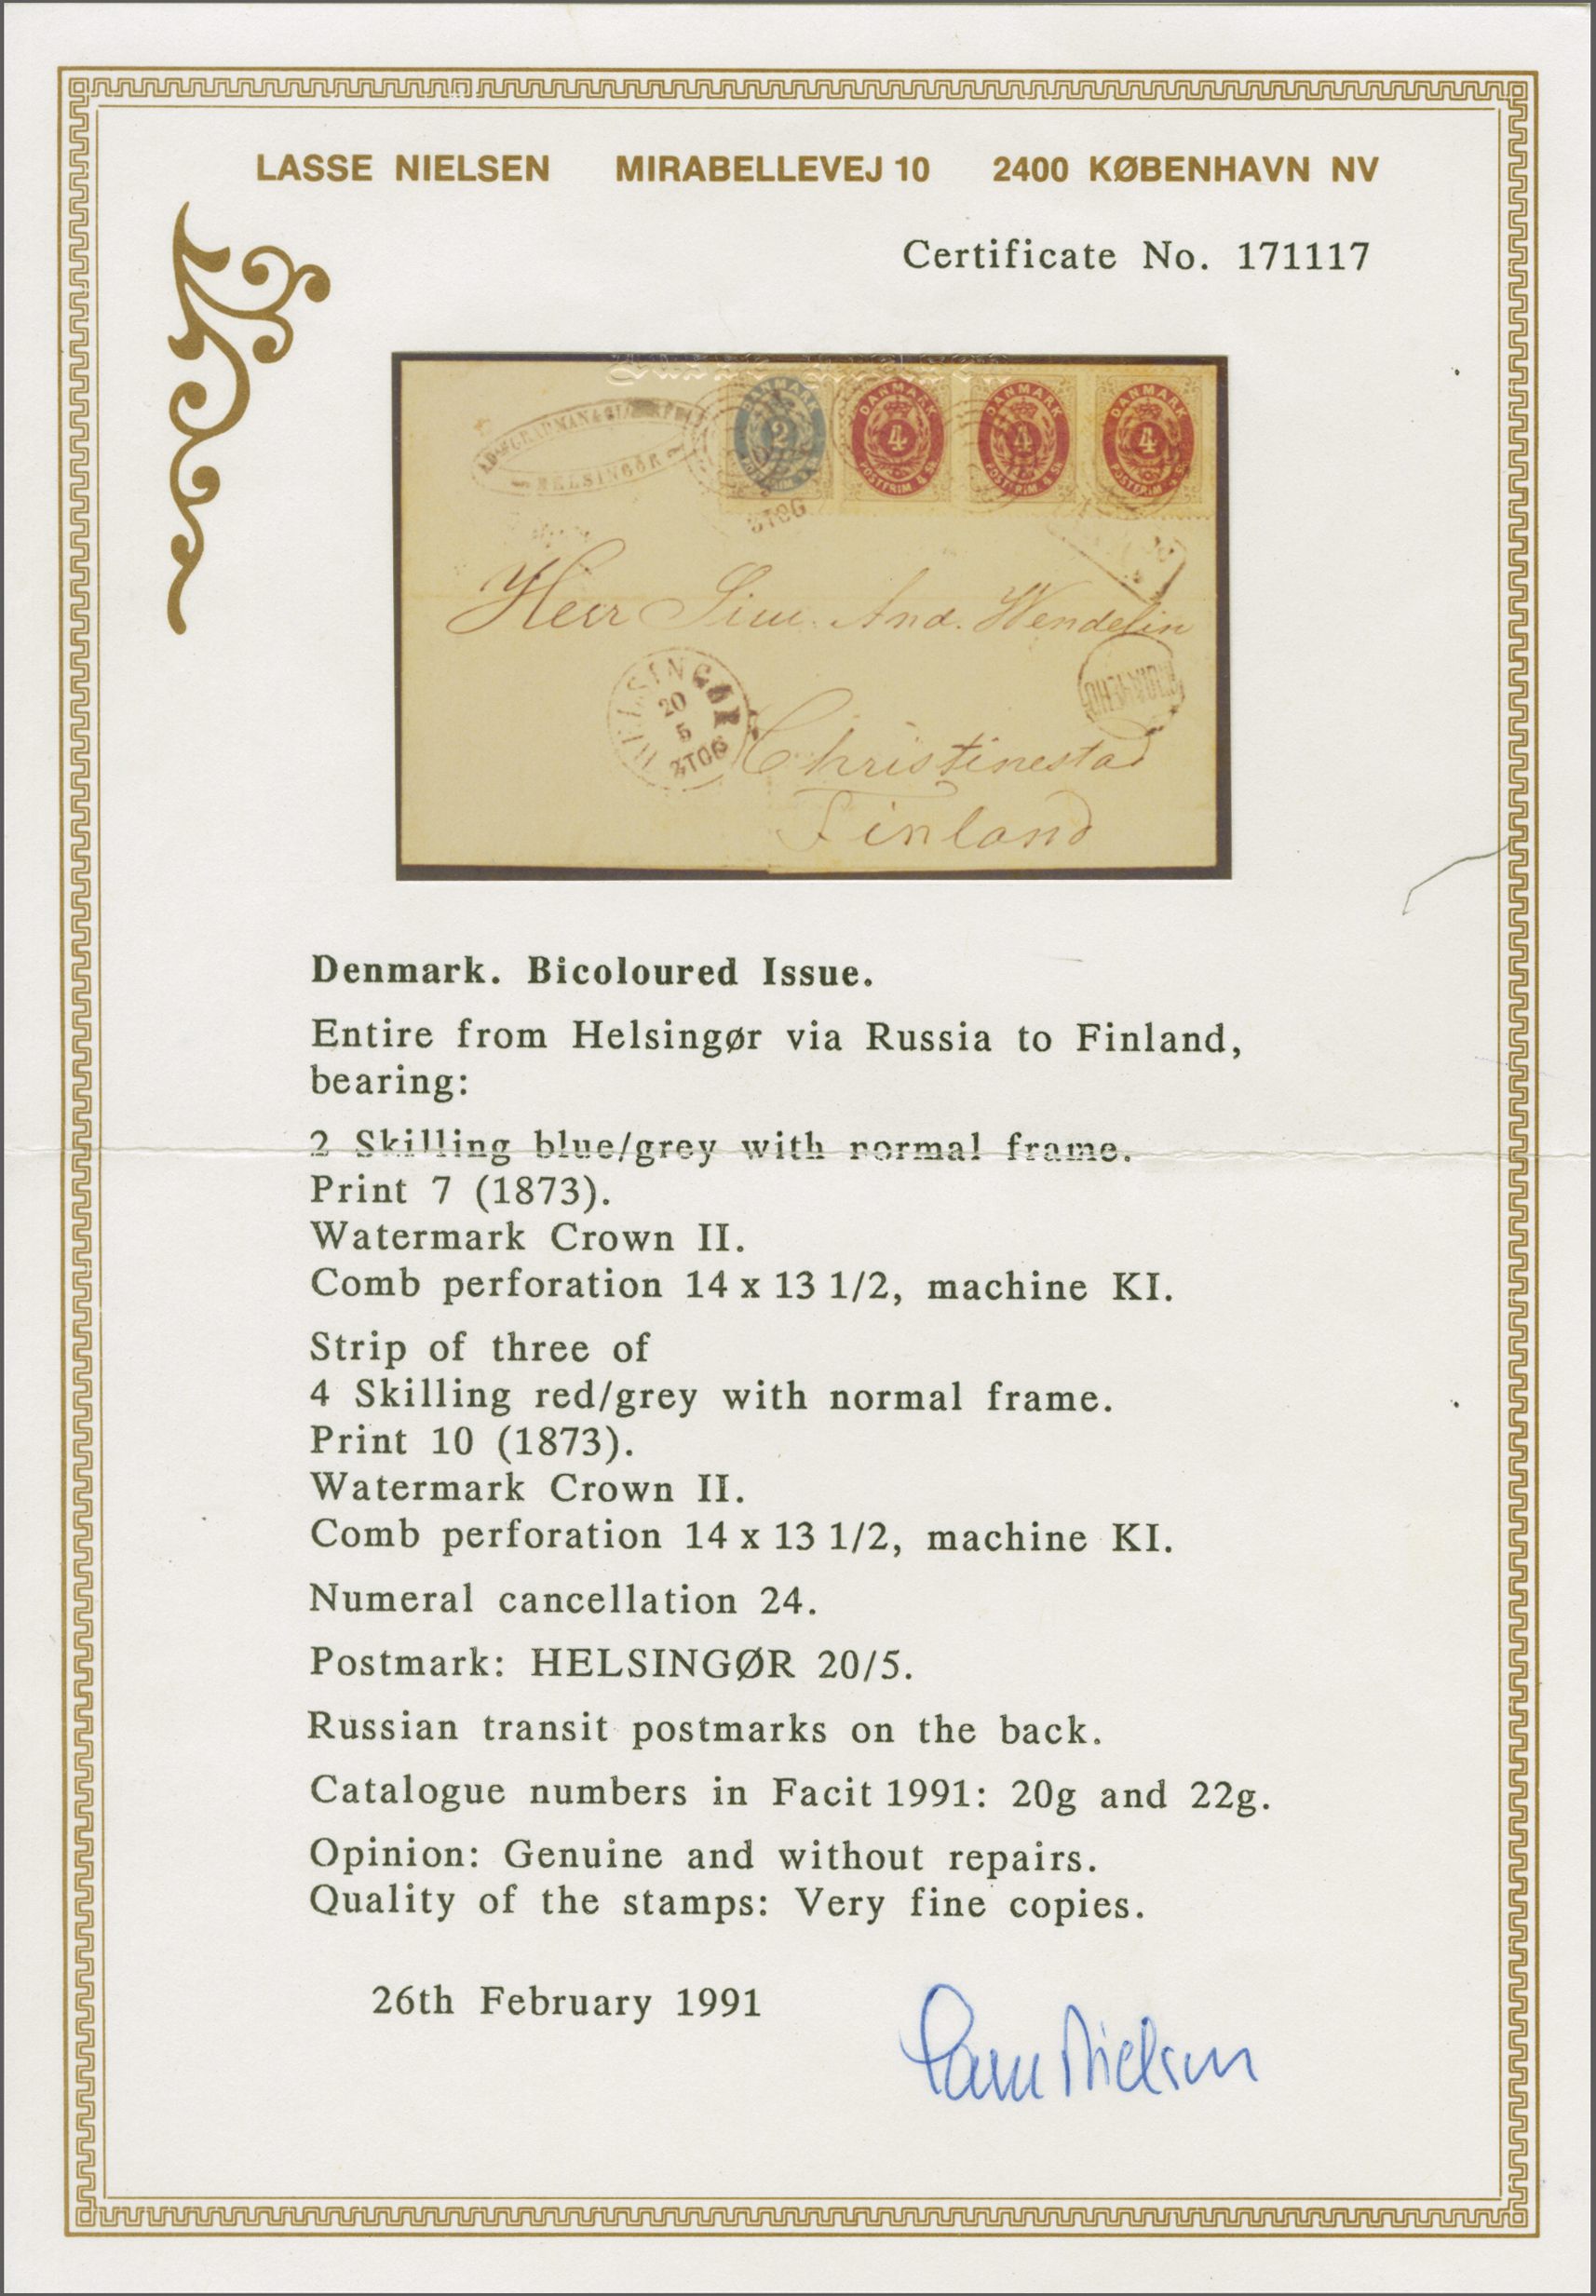 LASSE NIELSEN MIRABELLEVEJ 10 2400 KØBENHAVN NV
Certificate No. 171117
HELSINGÖR
DANMARK 2
DANMARK 4 POSTFRIM 4 SK
DANMARK 4 POSTFRIM 4 SK
DANMARK 4 POSTFRIM 4 SK
Herr And. Wendelin
HELSINGØR 20 5 2TOG
Christinestad
Finland
Denmark. Bicoloured Issue.
Entire from Helsingør via Russia to Finland,
bearing:
2 Skilling blue/grey with normal frame.
Print 7 (1873).
Watermark Crown II.
Comb perforation 14 x 13 1/2, machine KI.
Strip of three of
4 Skilling red/grey with normal frame.
Print 10 (1873).
Watermark Crown II.
Comb perforation 14 x 13 1/2, machine KI.
Numeral cancellation 24.
Postmark: HELSINGØR 20/5.
Russian transit postmarks on the back.
Catalogue numbers in Facit 1991: 20g and 22g.
Opinion: Genuine and without repairs.
Quality of the stamps: Very fine copies.
26th February 1991
Lasse Nielsen